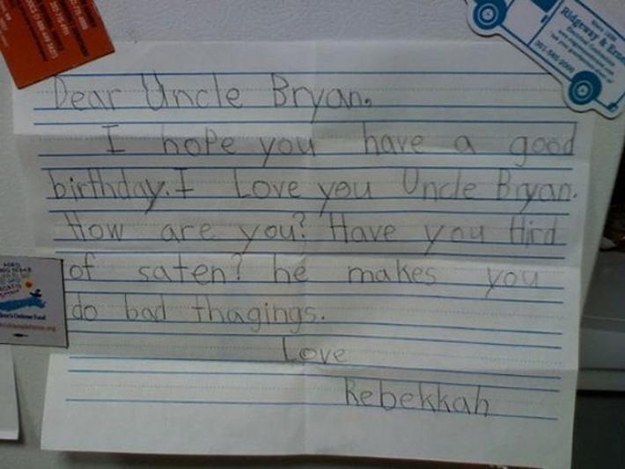 Dear Uncle Bryan.
I hope you have a good
birthday. I Love you Uncle Bryan.
How are you? Have you Hird
of saten? he makes you
do bad thagings.
Love
Rebekkah
Ridgeway &